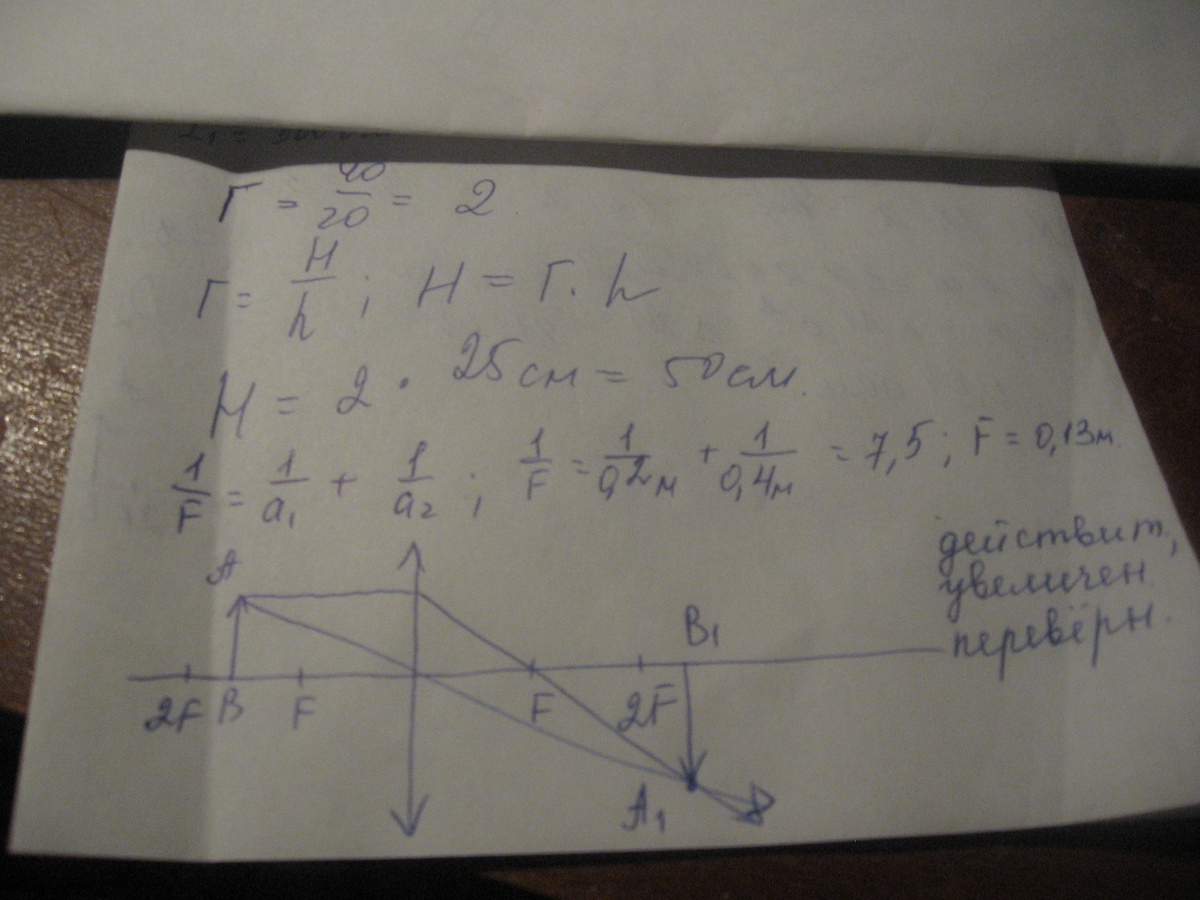 Г = 40/20 = 2
Г = H/h ; H = Г · h
H = 2 · 25 см = 50 см.
1/F = 1/a₁ + 1/a₂ ; 1/F = 1/0,2м + 1/0,4м = 7,5 ; F = 0,13м.
действит,
увеличен
перевёрн.
A
B₁
2F B F F 2F
A₁